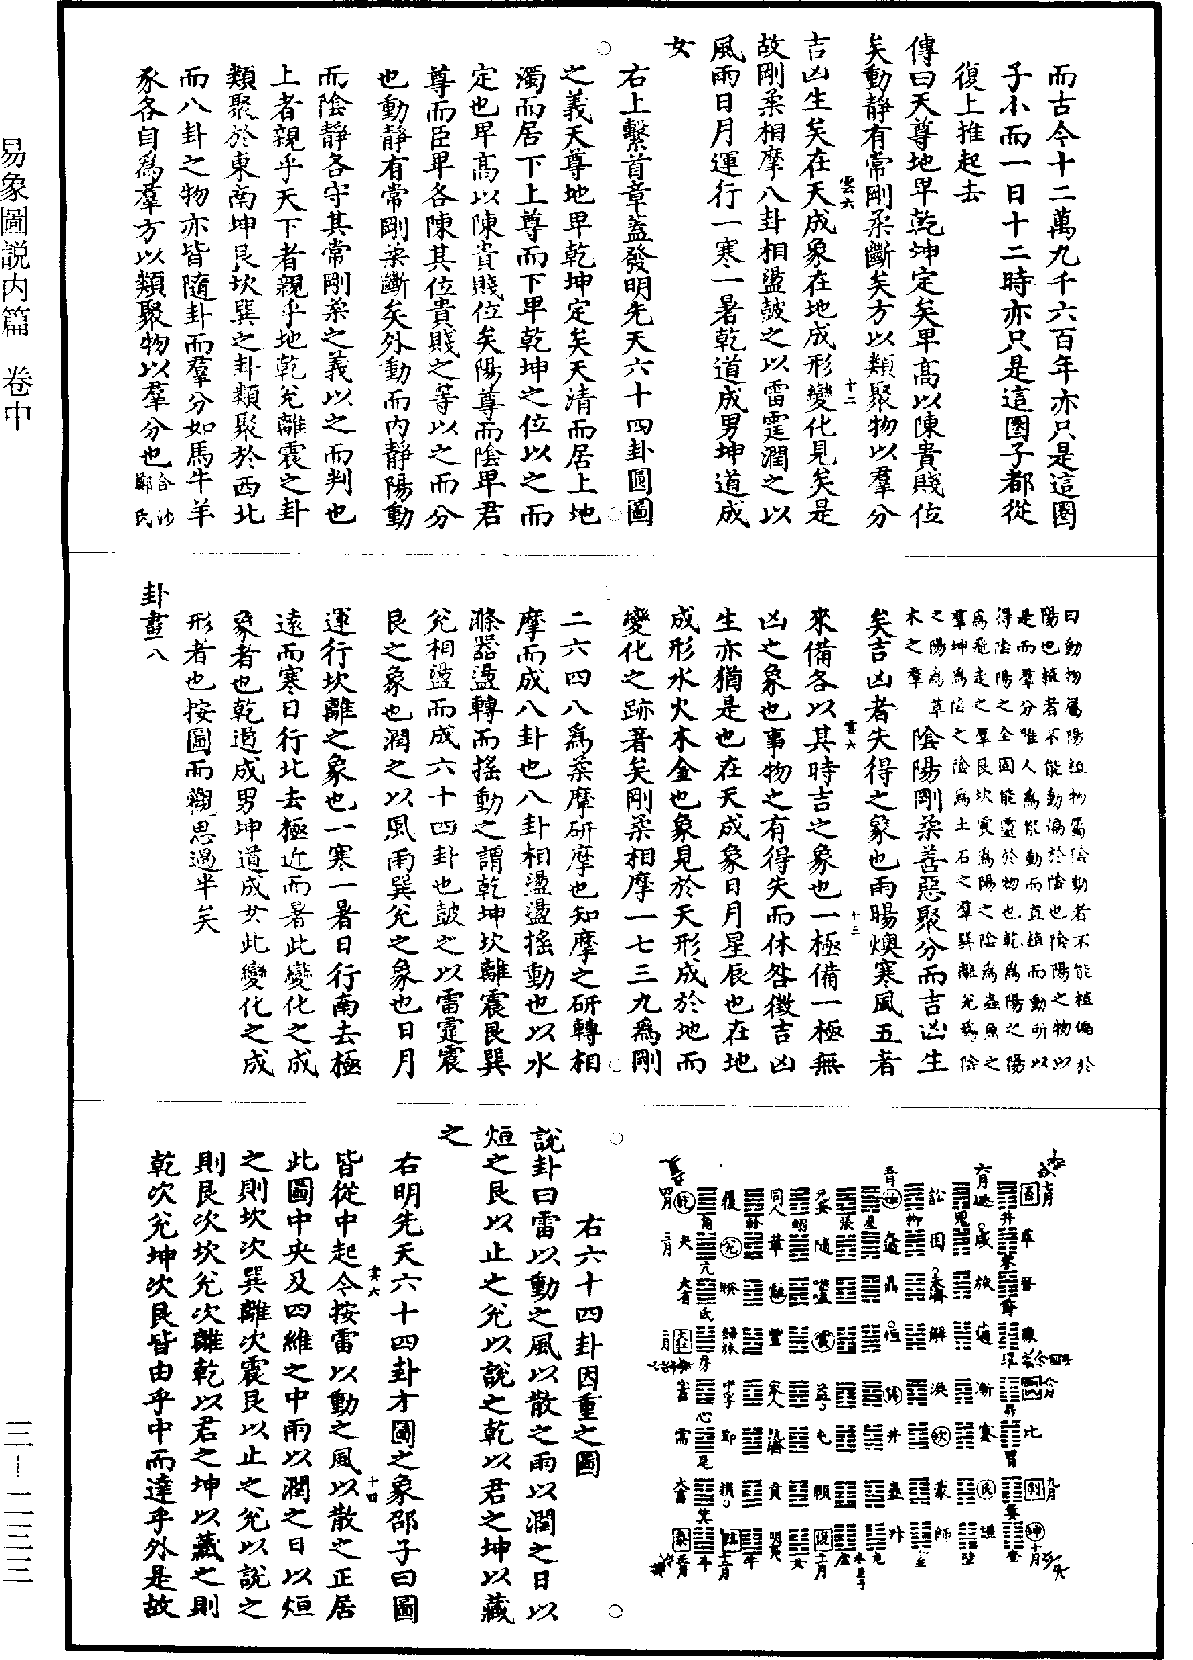 易象圖說內篇 卷中
三—二三三
而古今十二萬九千六百年亦只是這圈
子小而一日十二時亦只是這圈子都從
復上推起去
傳曰天尊地卑乾坤定矣卑高以陳貴賤位
矣動靜有常剛柔斷矣方以類聚物以羣分
雲六
十二
吉凶生矣在天成象在地成形變化見矣是
故剛柔相摩八卦相盪鼓之以雷霆潤之以
風雨日月運行一寒一暑乾道成男坤道成
女
右上繫首章蓋發明先天六十四卦圓圖
之義天尊地卑乾坤定矣天清而居上地
濁而居下上尊而下卑乾坤之位以之而
定也卑高以陳貴賤位矣陽尊而陰卑君
尊而臣卑各陳其位貴賤之等以之而分
也動靜有常剛柔斷矣外動而內靜陽動
而陰靜各守其常剛柔之義以之而判也
上者親乎天下者親乎地乾兌離震之卦
類聚於東南坤艮坎巽之卦類聚於西北
而八卦之物亦皆隨卦而羣分如馬牛羊
豕各自為羣方以類聚物以羣分也合沙
鄭氏
曰動物屬陽植物屬陰動者不能植偏於
陽也植者不能動偏於陰也陰陽之物以
是而羣分唯人為能動而直植而動所以
得陰陽之全固能靈於物也乾為陽之陽
為飛走之羣艮坎震為陽之陰為蟲魚之
羣坤為陰之陰為土石之羣巽離兌為陰
之陽為草
木之羣
陰陽剛柔善惡聚分而吉凶生
矣吉凶者失得之象也雨暘燠寒風五者
雲六
十三
來備各以其時吉之象也一極備一極無
凶之象也事物之有得失而休咎徵吉凶
生亦猶是也在天成象日月星辰也在地
成形水火木金也象見於天形成於地而
變化之跡著矣剛柔相摩一七三九為剛
二六四八為柔摩研摩也知摩之研轉相
摩而成八卦也八卦相盪盪搖動也以水
滌器盪轉而搖動之謂乾坤坎離震艮巽
兌相盪而成六十四卦也鼓之以雷霆震
艮之象也潤之以風雨巽兌之象也日月
運行坎離之象也一寒一暑日行南去極
遠而寒日行北去極近而暑此變化之成
象者也乾道成男坤道成女此變化之成
形者也按圖而觀思過半矣
卦畫八
右六十四卦因重之圖
說卦曰雷以動之風以散之雨以潤之日以
烜之艮以止之兌以說之乾以君之坤以藏
之
右明先天六十四卦才圖之象邵子曰圖
皆從中起今按雷以動之風以散之正居
雲六
十四
此圖中央及四維之中雨以潤之日以烜
之則坎次巽離次震艮以止之兌以說之
則艮次坎兌次離乾以君之坤以藏之則
乾次兌坤次艮皆由乎中而達乎外是故